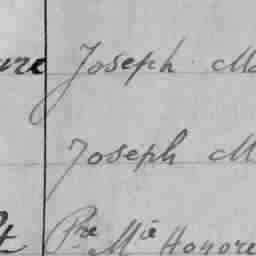 Joseph
Joseph M
Pre Mie Honoré